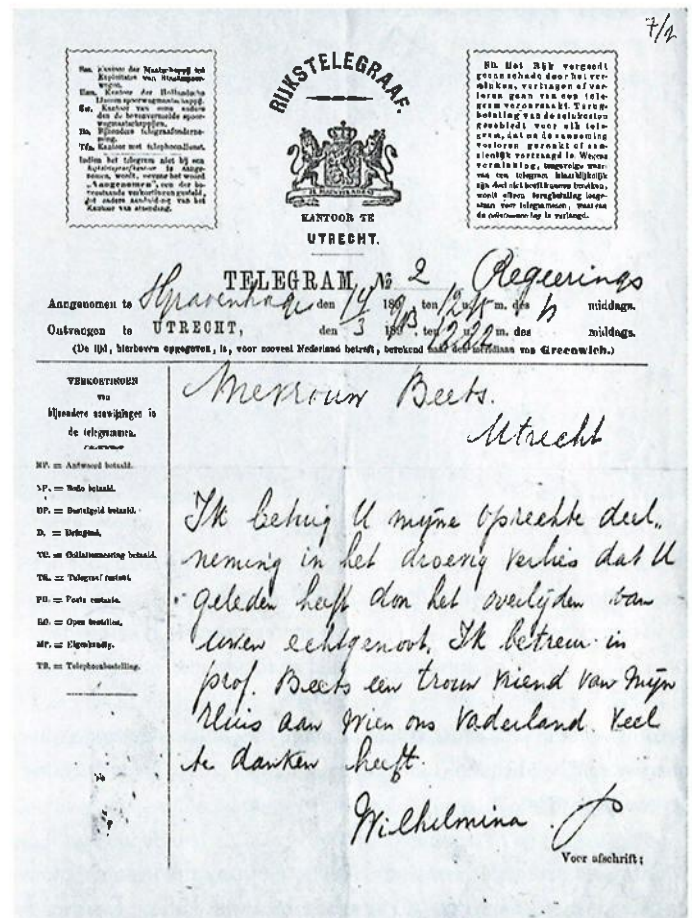 7/2
Sss. Kantoor der Maatschappij tot
Exploitatie van Staatsspoor-
wegen.
Hsm. Kantoor der Hollandsche
IJzeren spoorwegmaatschappij.
Kantoor van eene andere
dan de bovenvermelde spoor-
wegmaatschappijen.
Bijzondere telegraafonderne-
ming.
Tfn. Kantoor met telephoondienst.
Indien het telegram niet bij een
is aange-
nomen, wordt, vóór het woord
„Aangenomen”, een der bo-
venstaande verkortingen gesteld,
tot nadere aanduiding van het
Kantoor van afzending.
RIJKSTELEGRAAF.
KANTOOR TE
UTRECHT.
NB. Het Rijk vergoedt
geene schade door het ver-
minken, vertragen of ver-
loren gaan van een tele-
gram veroorzaakt. Terug-
betaling van de seinkosten
geschiedt voor elk tele-
gram, dat na de aanneming
verloren geraakt of aan-
zienlijk vertraagd is. Wegens
verminking, tengevolge waar-
van een telegram blijkbaar
zijn doel niet heeft kunnen bereiken,
wordt alleen terugbetaling toege-
staan voor telegrammen, waarvan
de is verlangd.
TELEGRAM № 2 Regeerings
Aangenomen te S'Gravenhage den 14 ten 12 u. m. des n middags.
Ontvangen te UTRECHT, den 3 ten 2 u. 22 m. des middags.
(De tijd, hierboven opgegeven, is, voor zooveel Nederland betreft, berekend naar den meridiaan van Greenwich.)
VERKORTINGEN
van
bijzondere aanwijzingen in
de telegrammen.
RP. = Antwoord betaald.
XP. = Bode betaald.
= Bestelgeld betaald.
D. = Dringend.
TC. = Collationneering betaald.
TR. = Telegraaf restant.
= Poste restante.
RO. = Open bestellen.
MP. = Eigenhandig.
= Telephoonbestelling.
Mevrouw Beets.
Utrecht
Ik betuig U mijne oprechte deel„
neming in het droevig verlies dat U
geleden heeft don het overlijden van
uwen echtgenoot. Ik betreur in
prof. Beets een trouw vriend van mijn
Huis aan wien ons vaderland veel
te danken heeft.
Wilhelmina.
Voor afschrift: